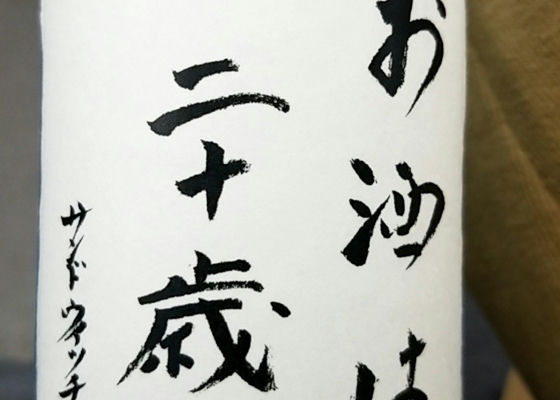 お酒は
二十歳
サンドウィッチ